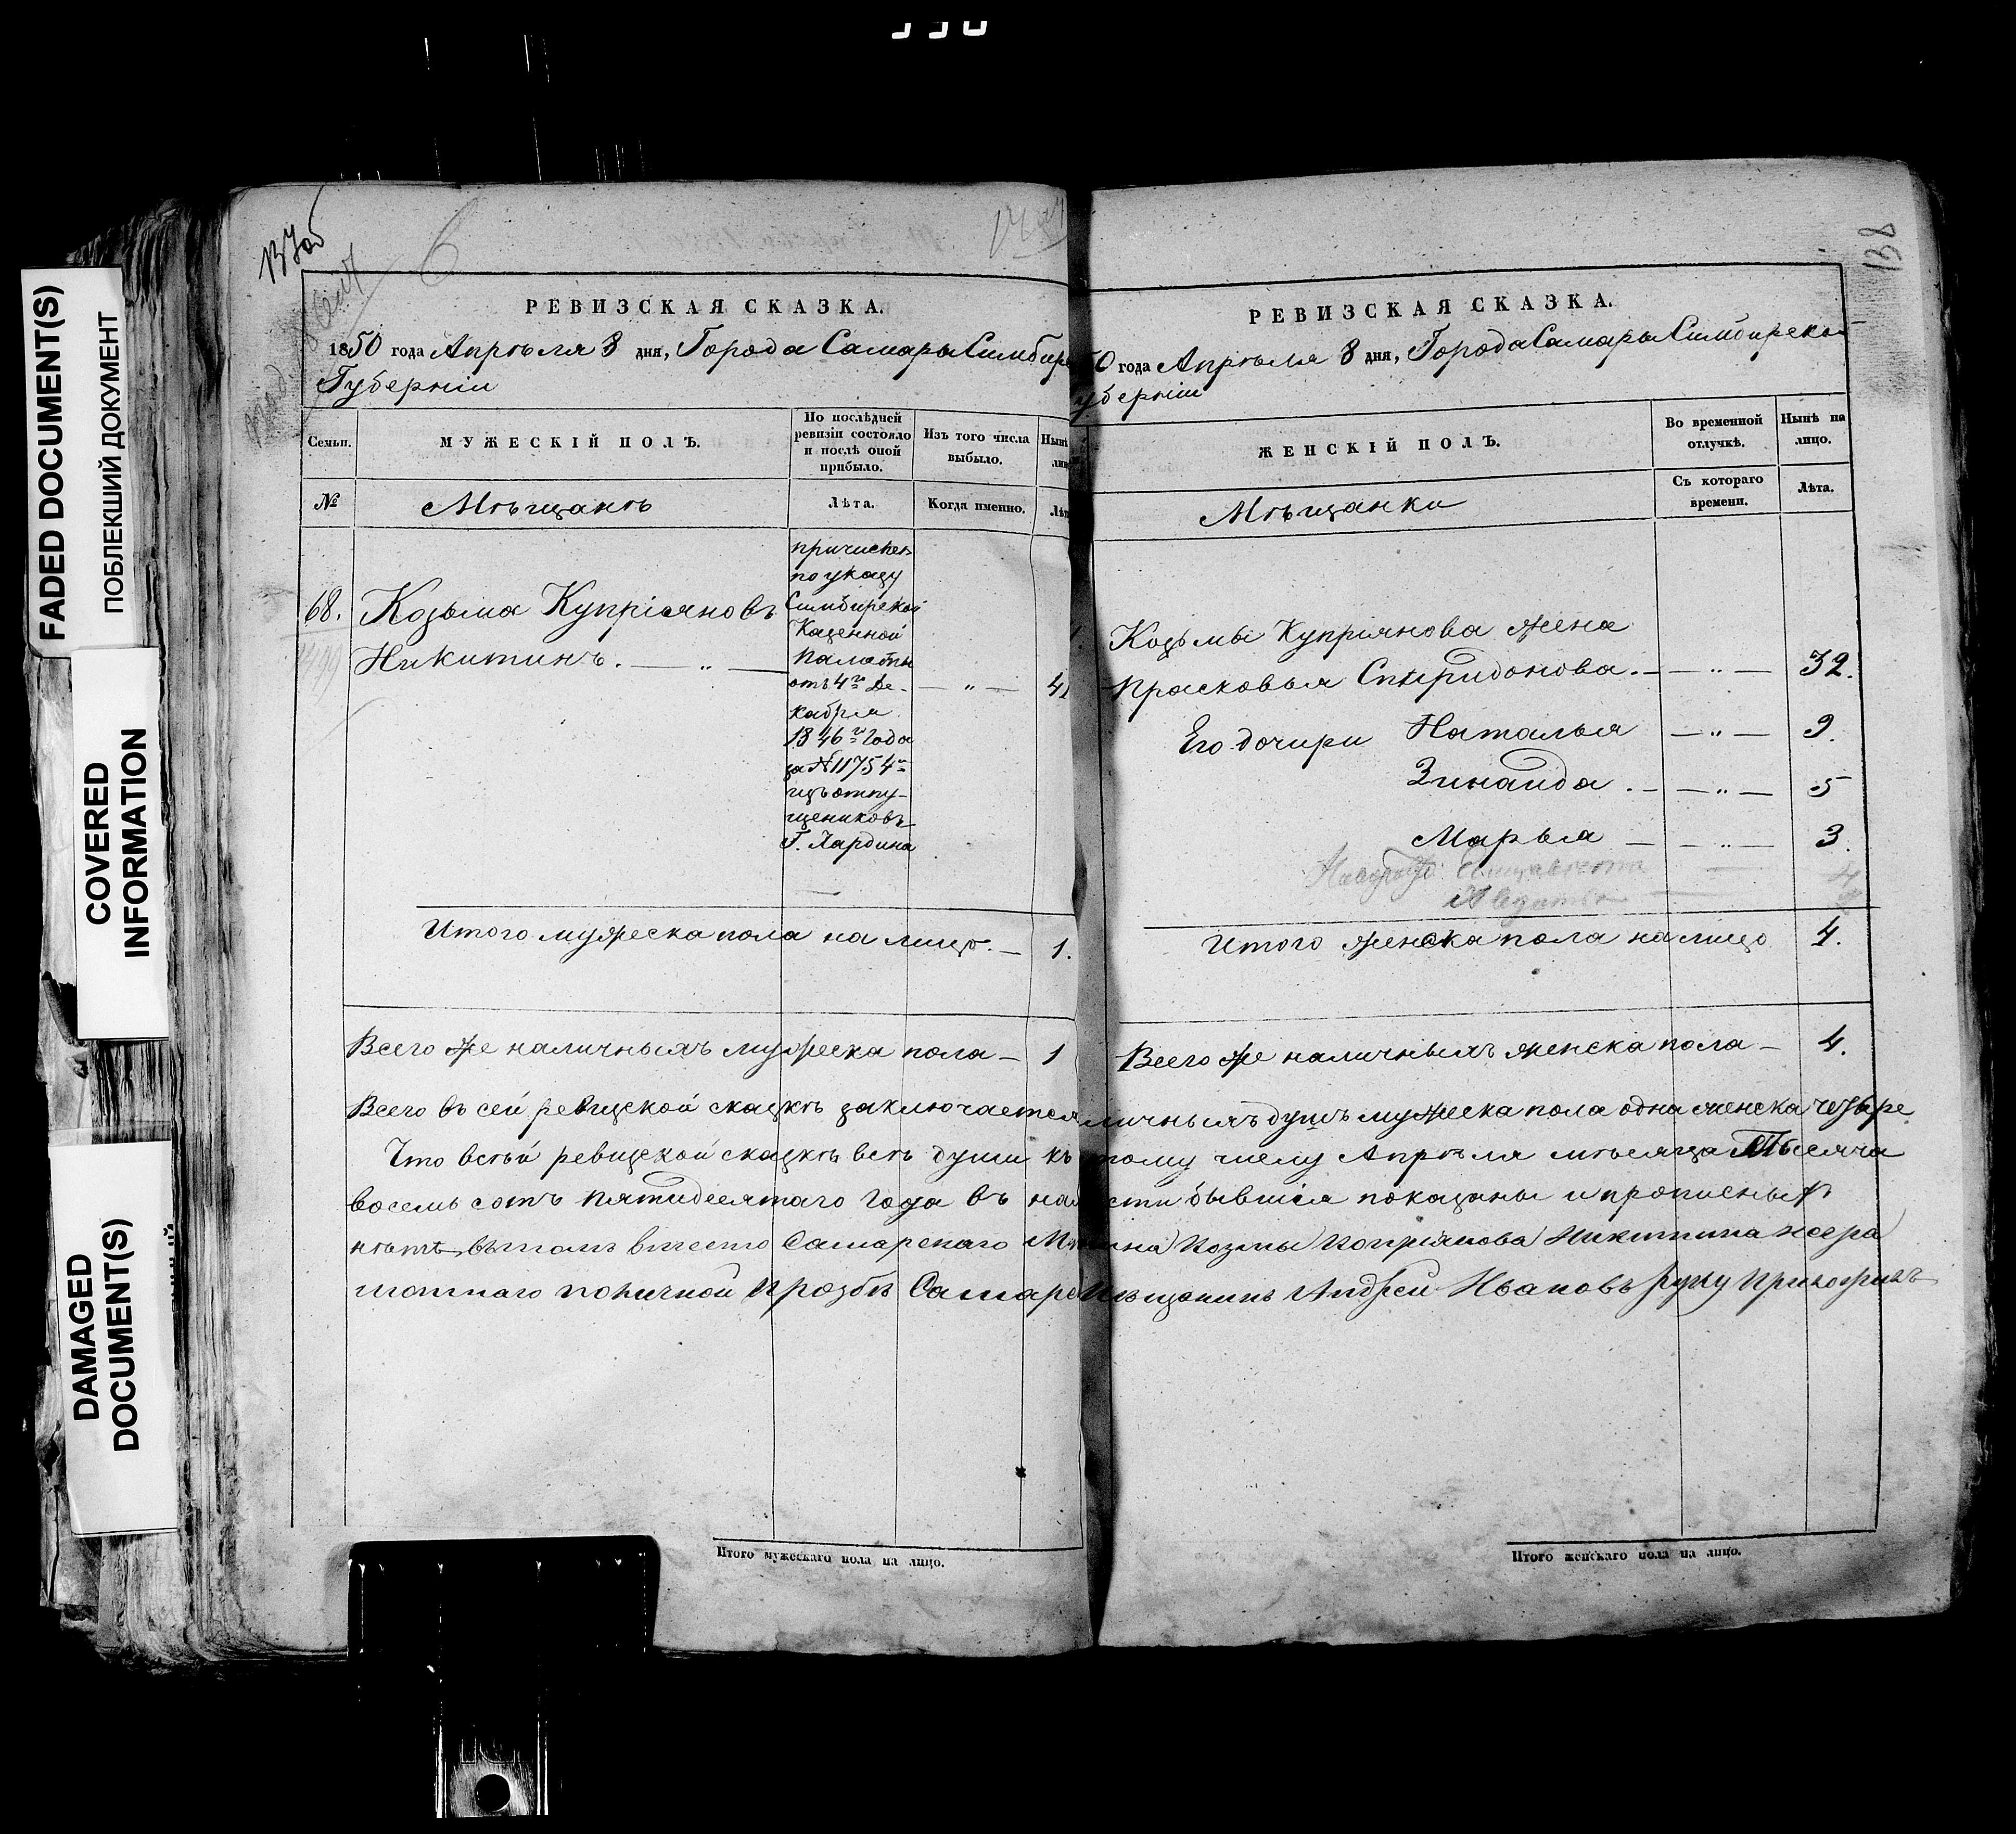 FADED DOCUMENT(S)
ПОБЛЕКШИЙ ДОКУМЕНТ
COVERED
INFORMATION
DAMAGED
DOCUMENT(S)
137об
РЕВИЗСКАЯ СКАЗКА.
1850 года Апрѣля 8 дня, Города Самары Симбирс
Губерніи
Семьи.
МУЖЕСКІЙ ПОЛЪ.
По послѣдней
ревизіи состояло
и послѣ оной
прибыло.
Изъ того числа
выбыло.
Нынѣ
№
Мѣщанѣ
Лѣта.
Когда именно.
68. Козьма Купріяновъ
Никитинъ. — „ —
причислен
по указу
Симбирской
Казенной
Палаты
отъ 4го Де-
кабря
1846го Года
за № 11754м
изъ отпу-
щениковъ
Г. Хардина
— „ — 41
Итого мужеска пола на лицо. — 1.
Всего же наличныхъ мужеска пола — 1
138
РЕВИЗСКАЯ СКАЗКА.
0 года Апрѣля 8 дня, Города Самары Симбирской
уберніи
ЖЕНСКІЙ ПОЛЪ.
Во временной
отлучкѣ.
Нынѣ на
лицо.
Мѣщанки
Съ котораго
времени.
Лѣта.
Козьмы Купріянова жена
Прасковья Спиридонова. — — „ — 32.
Его дочири Наталья — „ — 9.
Зинаида . — — „ — 5
Марья — — „ — 3.
Итого женска пола на лицо 4.
Всего же наличныхъ женска пола — 4.
Всего въ сей ревизской сказкѣ заключается личныхъ душъ мужеска пола одна женска четыре
Что въ сей ревизской сказкѣ всѣ души къ тому числу Апрѣля мѣсяца Тысяча
восемь сотъ пятидесятаго года въ нал сти бывшія показаны и прописных
нѣтъ, въ томъ вместо Самарскаго Мѣ ина Козмы Коприянова Никитина негра
мотнаго поличной прозбѣ Самарс Мѣщанинъ Андрей Ивановъ руку приложилъ
Итого мужескаго пола на лицо.
Итого женскаго пола на лицо.